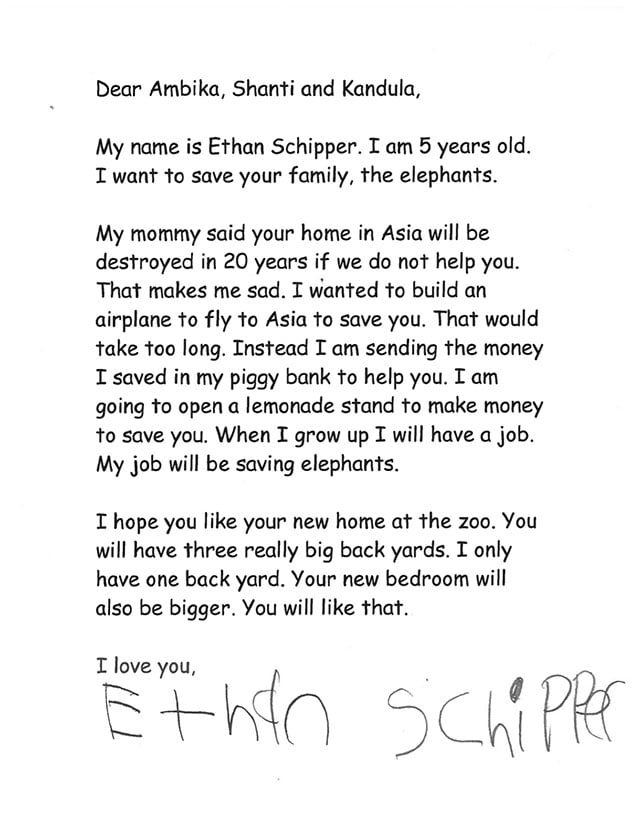 Dear Ambika, Shanti and Kandula,
My name is Ethan Schipper. I am 5 years old.
I want to save your family, the elephants.
My mommy said your home in Asia will be
destroyed in 20 years if we do not help you.
That makes me sad. I wanted to build an
airplane to fly to Asia to save you. That would
take too long. Instead I am sending the money
I saved in my piggy bank to help you. I am
going to open a lemonade stand to make money
to save you. When I grow up I will have a job.
My job will be saving elephants.
I hope you like your new home at the zoo. You
will have three really big back yards. I only
have one back yard. Your new bedroom will
also be bigger. You will like that.
I love you,
Ethan Schipper